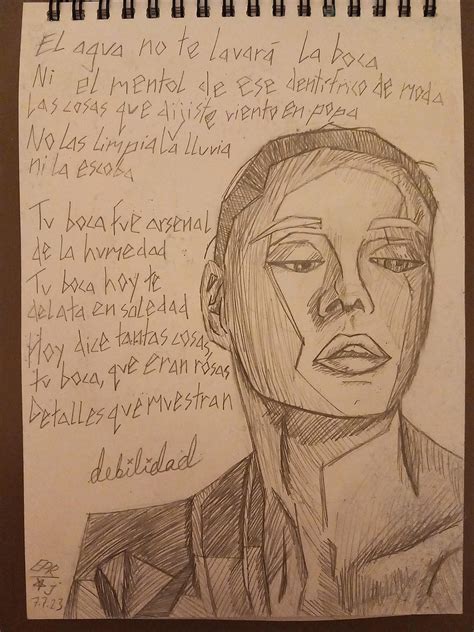 El agua no te lavará la boca
Ni el mentol de ese dentifrico de moda
Las cosas que dijiste viento en popa
No las limpia la lluvia
ni la escoba
Tu boca fue arsenal
de la humedad
Tu boca hoy te
delata en soledad
Hoy dice tantas cosas,
tu boca, que eran rosas
Detalles que muestran
debilidad
7.7.23